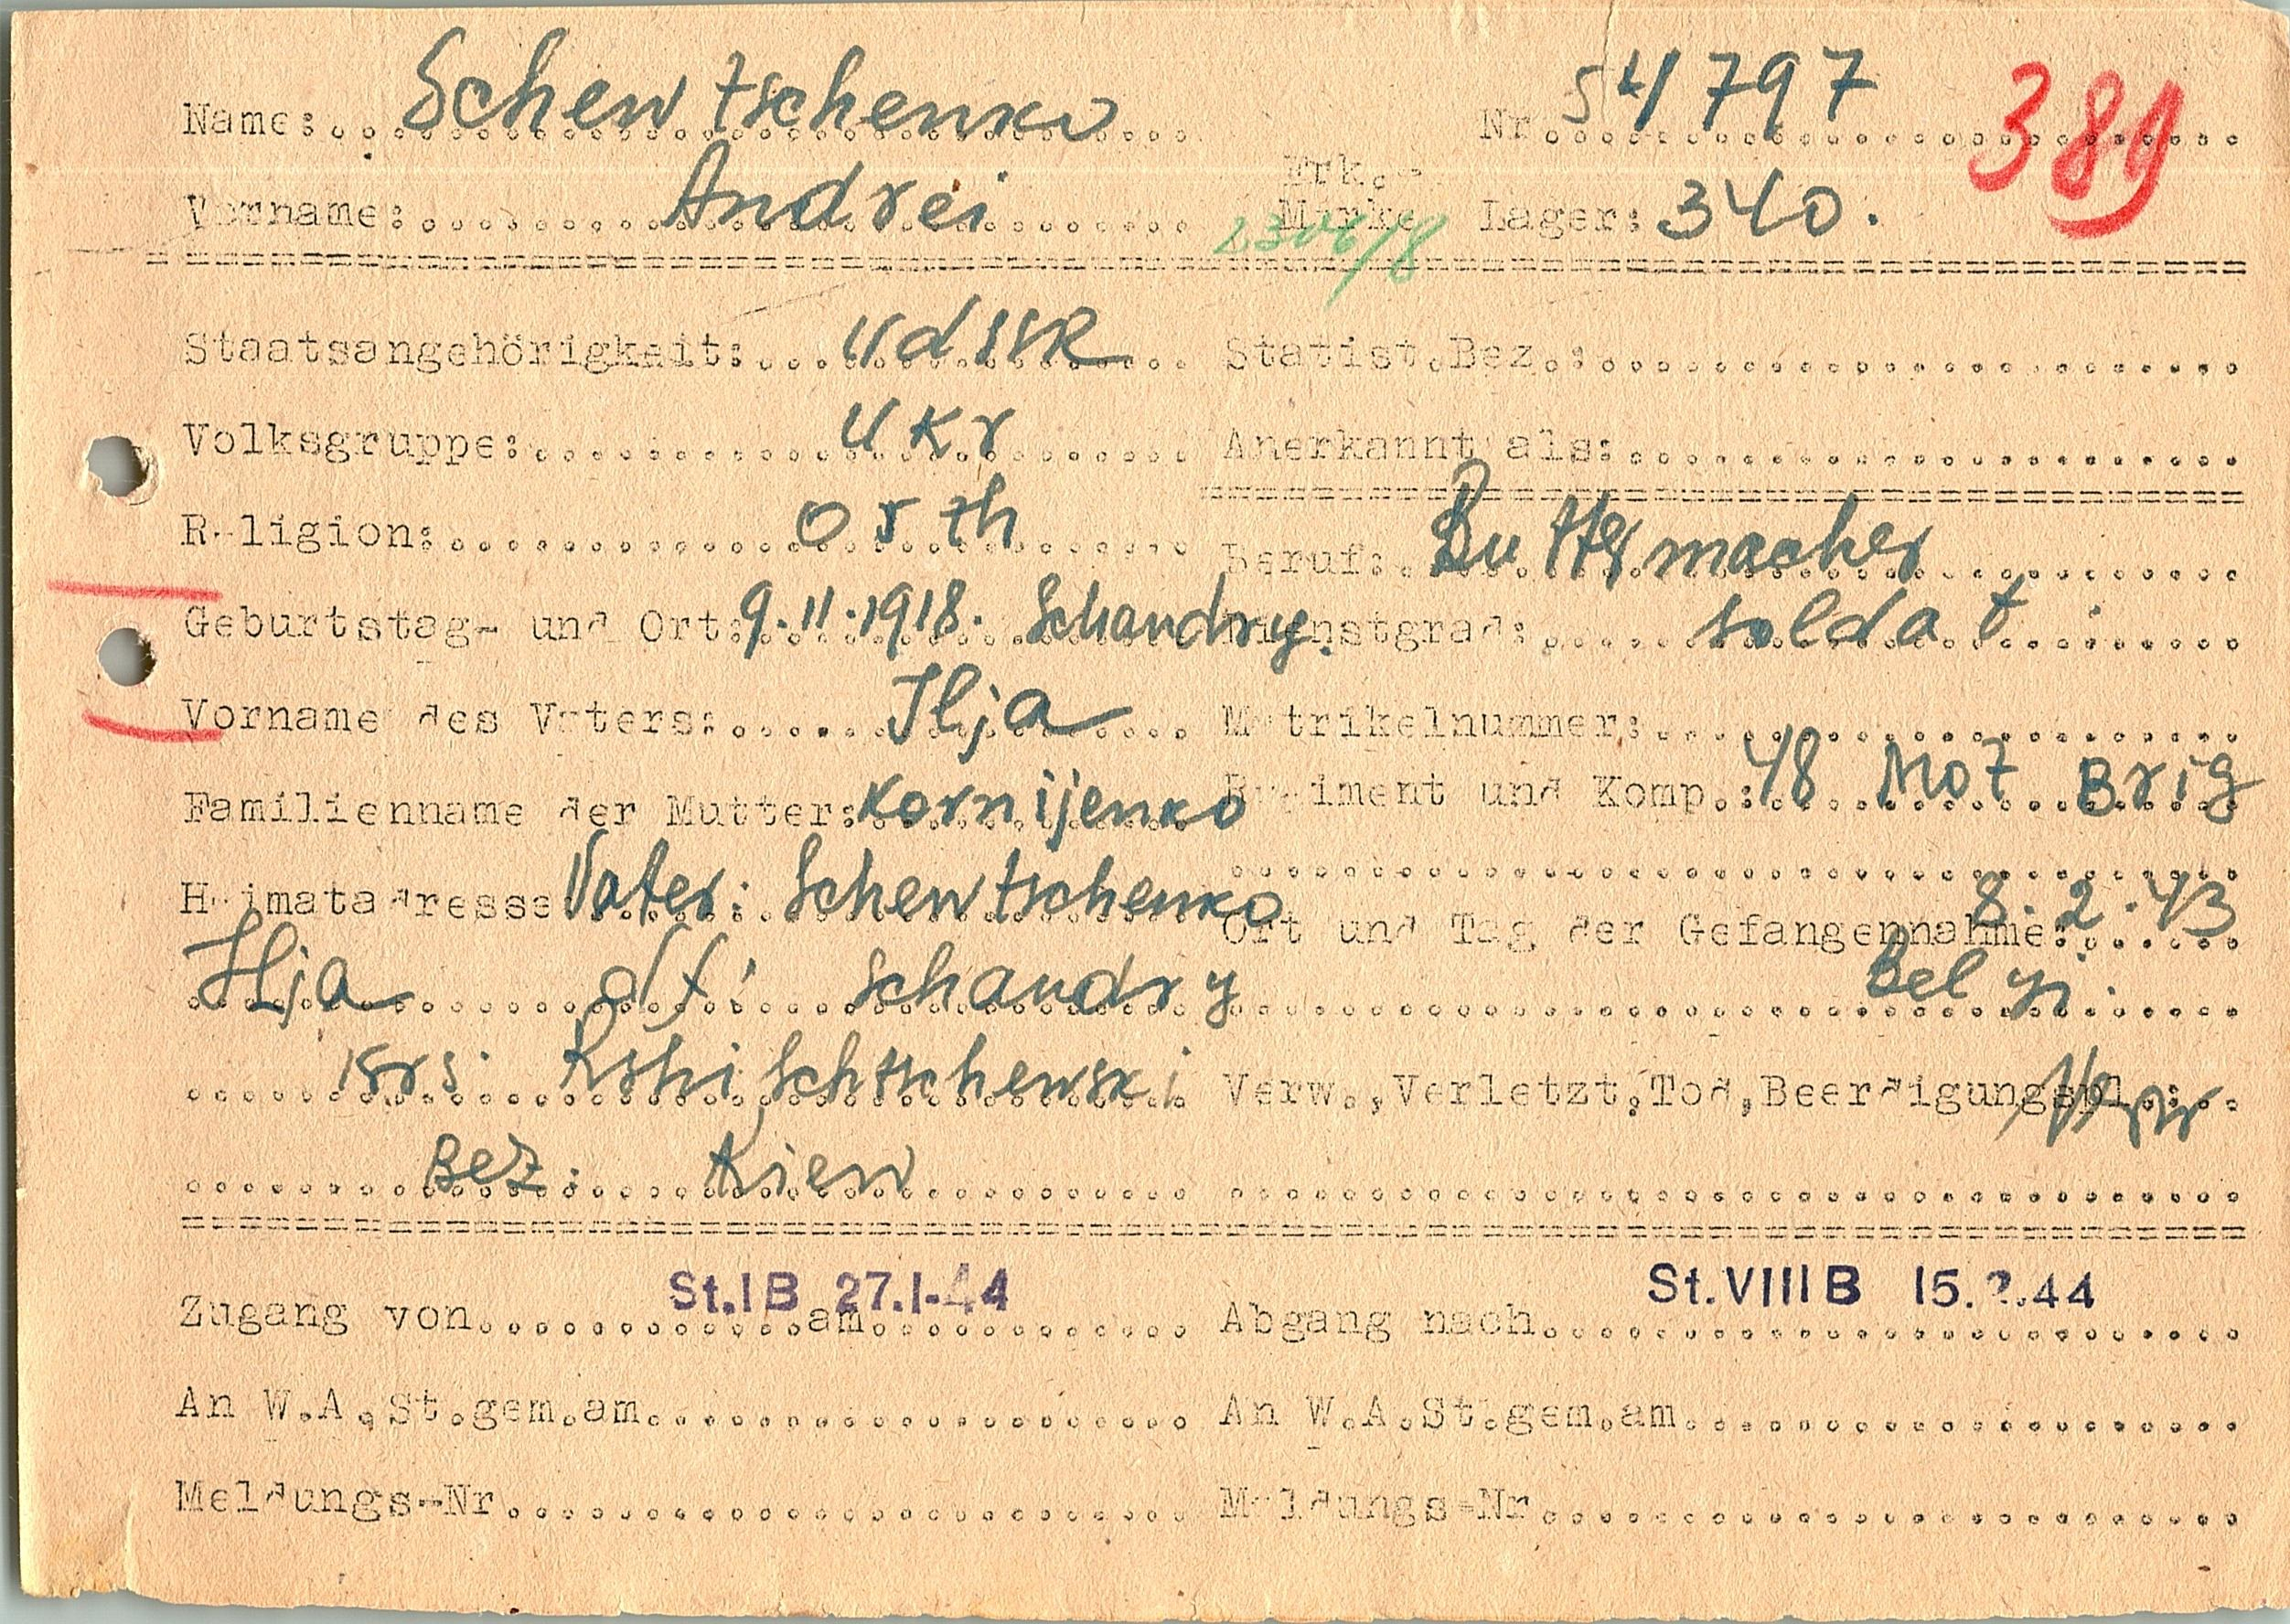 Name: Schewtschenko Nr. 54797 389
Vorname: Andrei Erk.-Marke Lager: 340.
Staatsangehörigkeit: UdSSR Statist.Bez.:
Volksgruppe: Ukr Anerkannt als:
Religion: orth Beruf: Buttermacher
Geburtstag- und Ort: 9.11.1918. Schandry. Dienstgrad: Soldat
Vorname des Vaters: Ilja Matrikelnummer:
Familienname der Mutter: Kornijenko Regiment und Komp.: 48 Mot Brig
Heimatadresse Vater: Schewtschenko Ort und Tag der Gefangennahme: 8.2.43
Ilja df: Schandry Belyi.
Krs: Rshischtschewski Verw.,Verletzt,Tod,Beerdigungspl.:
Bez: Kiew
Zugang von St.IB am 27.1.44 Abgang nach St.VIIIB 15. .44
An W.A.St.gem.am An W.A.St.gem.am
Meldungs-Nr Meldungs-Nr